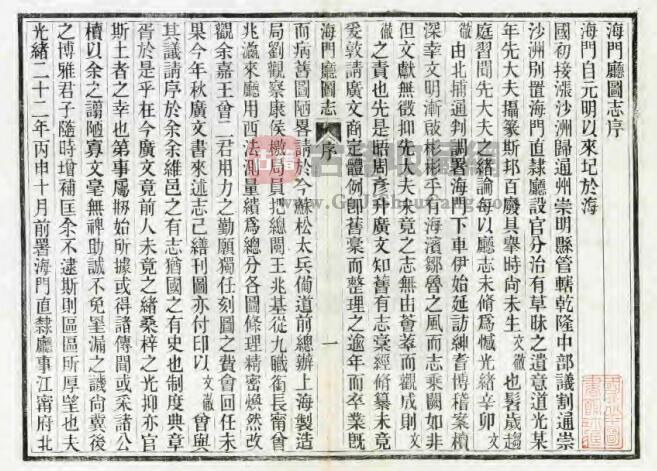 海門廳圖志序
海門自元明以來圮於海
國初接漲沙洲歸通州崇明縣管轄乾隆中部議割通崇
沙洲別置海門直隸廳設官分治有草昧之遺意道光某
年先大夫攝篆斯邦百廢具舉時向未生文徽也髫歲趨
庭習聞先大夫之緒論每以廳志未脩為憾光緒辛卯文
徽由北捕通判調署海門下車伊始延訪紳耆博稽案牘
深幸文明漸啟彬彬乎有海濱鄒魯之風而志乘闕如非
但文獻無徵抑先大夫未竟之志無由薈萃而觀成則文
徽之責也先是晤周彥升廣文知舊有志稾經脩纂未竟
爰敦請廣文商定體例卽舊稾而整理之逾年而卒業旣
海門廳圖志 序 一
而病舊圖陋畧請於今蘇松太兵備道前總辦上海製造
局劉觀察康侯檄局員把總閔王兆基從九職銜長甯曾
兆瀛來廳用西法測量續為總分各圖條理精密煥然改
觀余嘉王曾二君用力之勤願獨任刻圖之費會回任未
果今年秋廣文書來述志已繕刊圖亦付印以文徽曾與
其議請序於余余維邑之有志猶國之有史也制度典章
胥於是乎在今廣文竟前人未竟之緒桑梓之光抑亦官
斯土者之幸也第事屬刱始所據或得諸傳聞或采諸公
牘以余之譾陋寡文毫無裨助誠不免罣漏之譏尙冀後
之博雅君子隨時增補匡余不逮斯則區區所厚望也夫
光緒二十二年丙申十月前署海門直隸廳事江甯府北